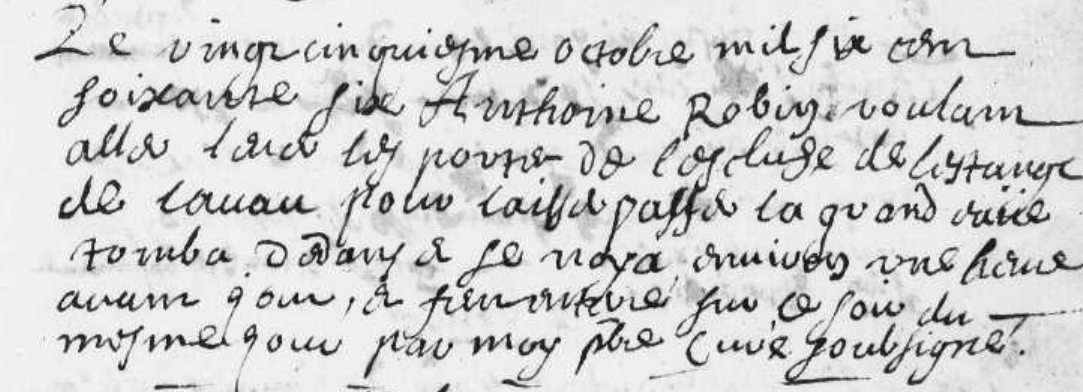 Le vingt cinquiesme octobre mil six cent
soixante six Anthoine Robin voulant
aller lever les portes de l'escluse de lestangt
de lavau pour laisser passer la grand eaüe
tomba dedans et se noya environ une heure
avant jour, et fut enterré sur ce soir du
mesme jour par moy pbre Curé soubsigné.